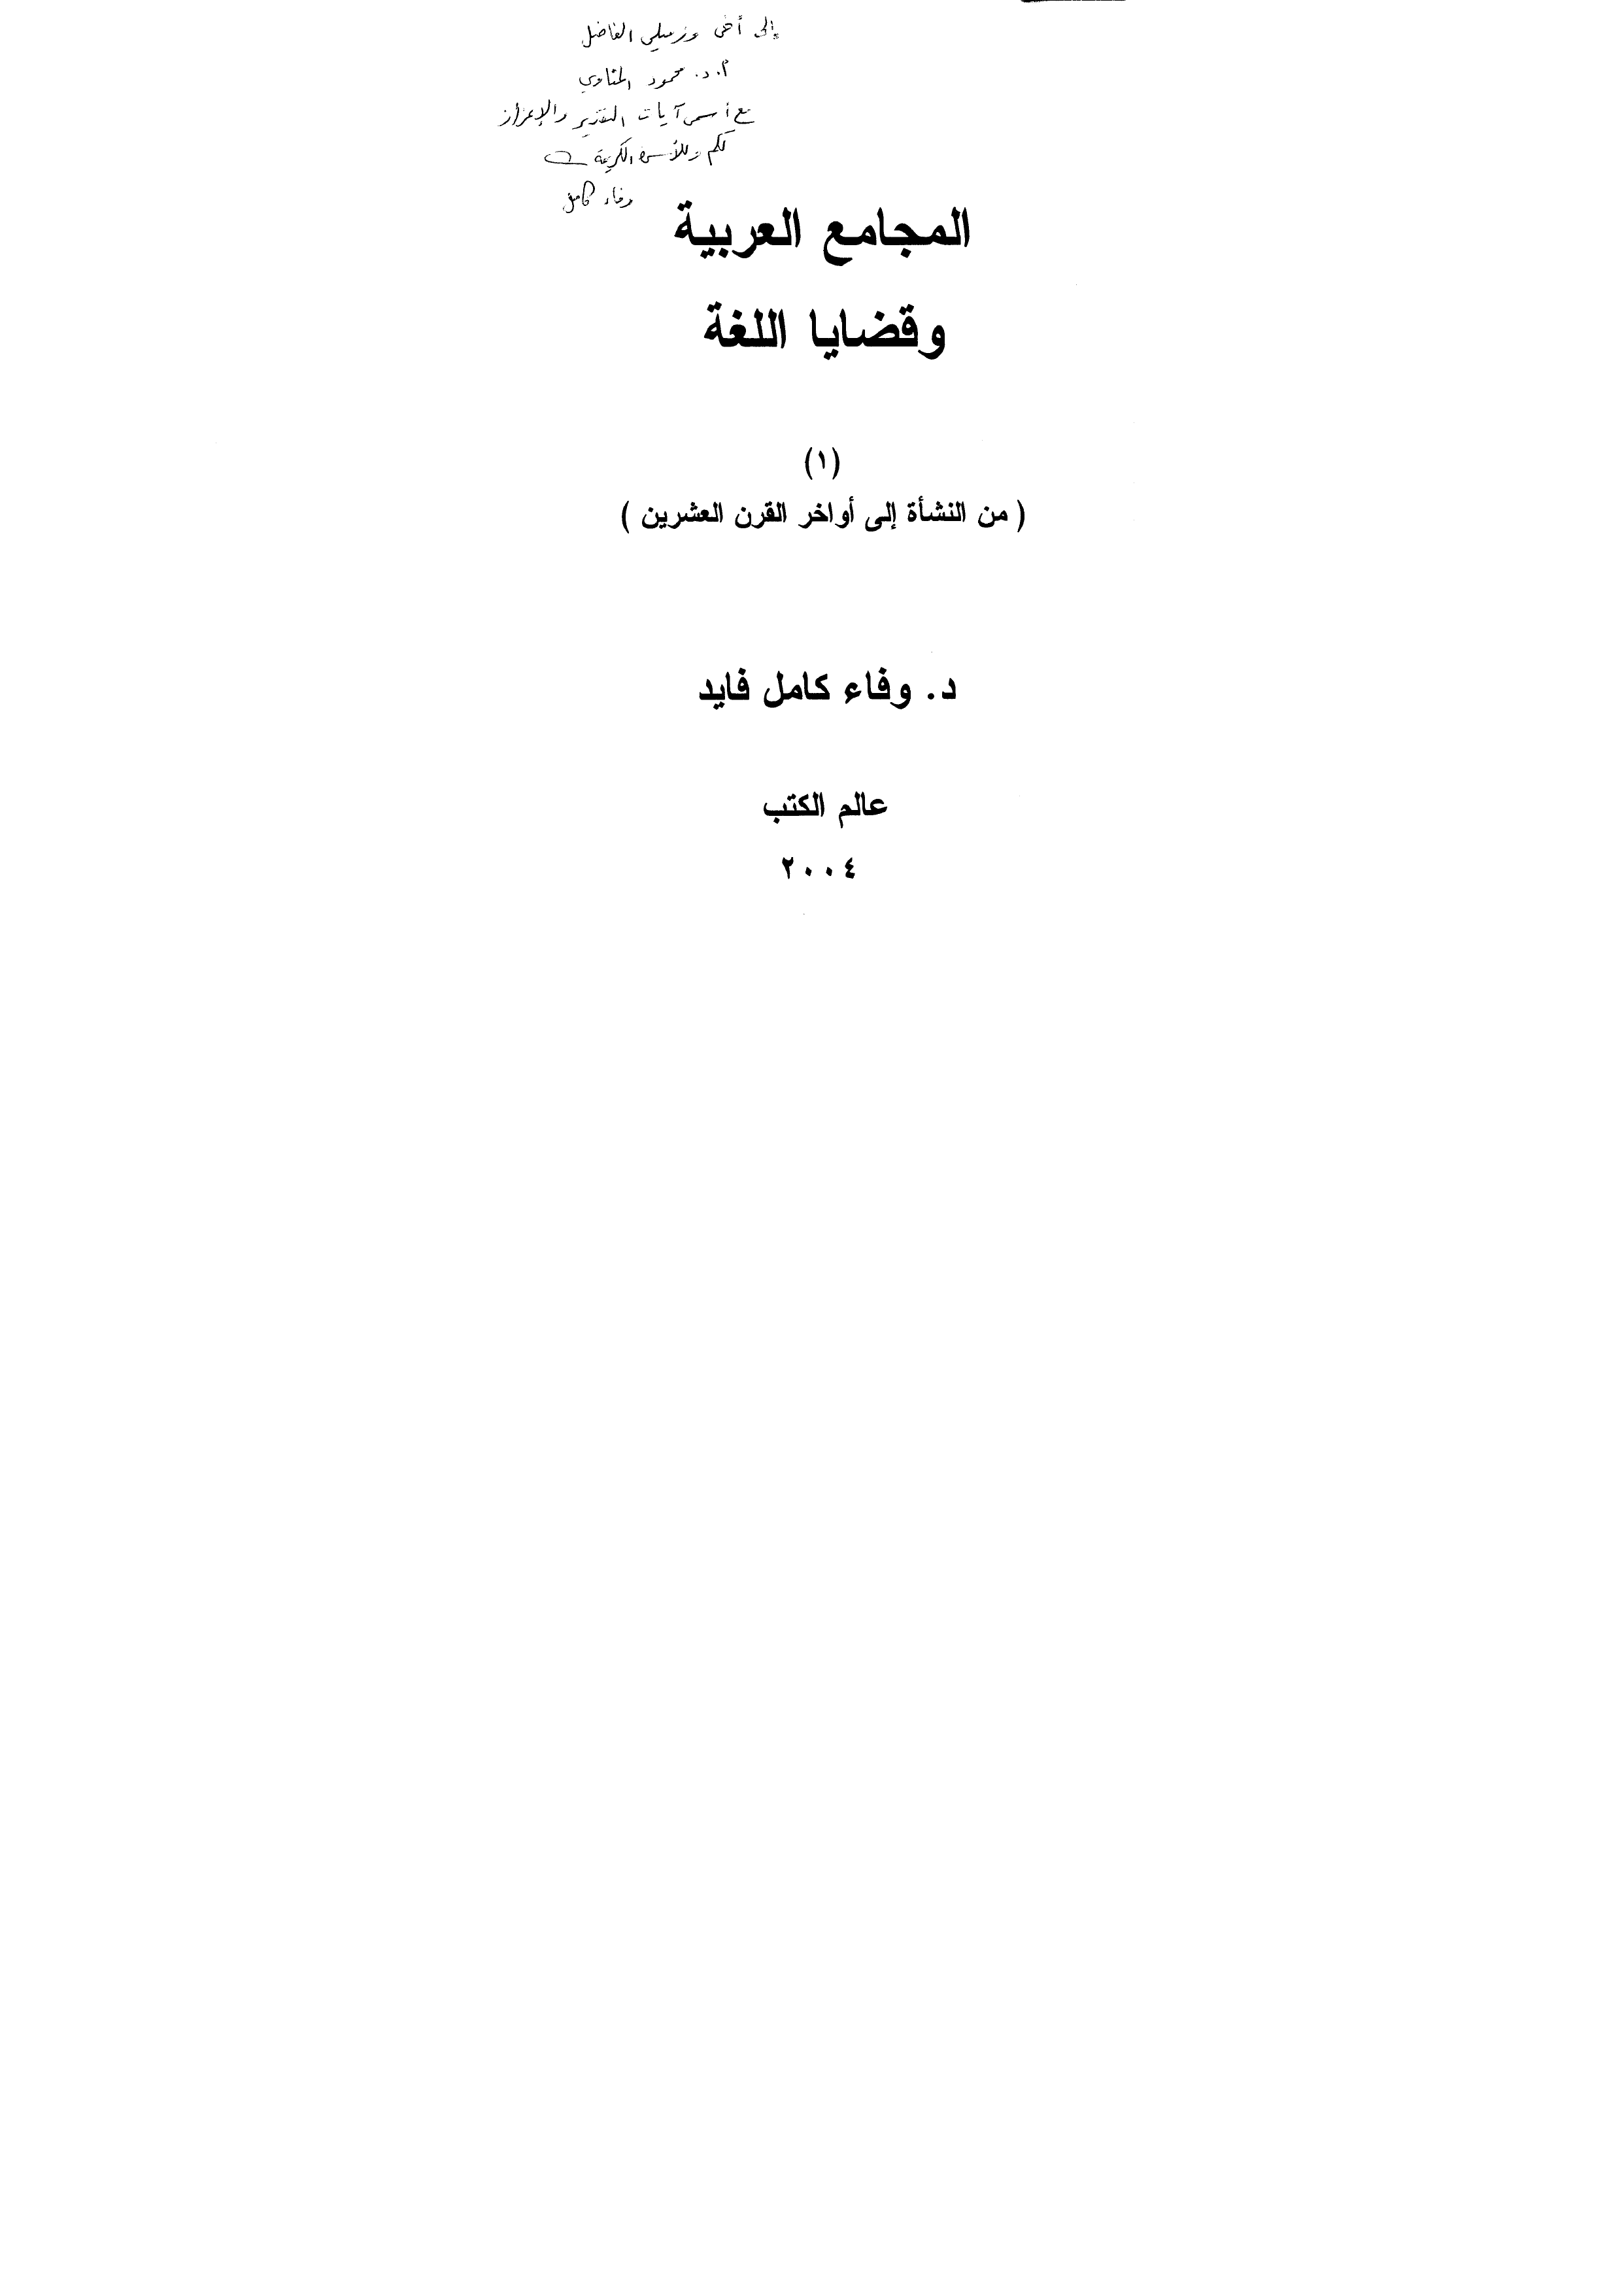 إلى أخى وزميلي الفاضل
أ.د. محمود المناوي
مع أسمى آيات التقدير والإعزاز
لكم وللأسرة الكريمة
وفاء كامل
المجامع العربية
وقضايا اللغة
(١)
( من النشأة إلى أواخر القرن العشرين )
د. وفاء كامل فايد
عالم الكتب
٢٠٠٤